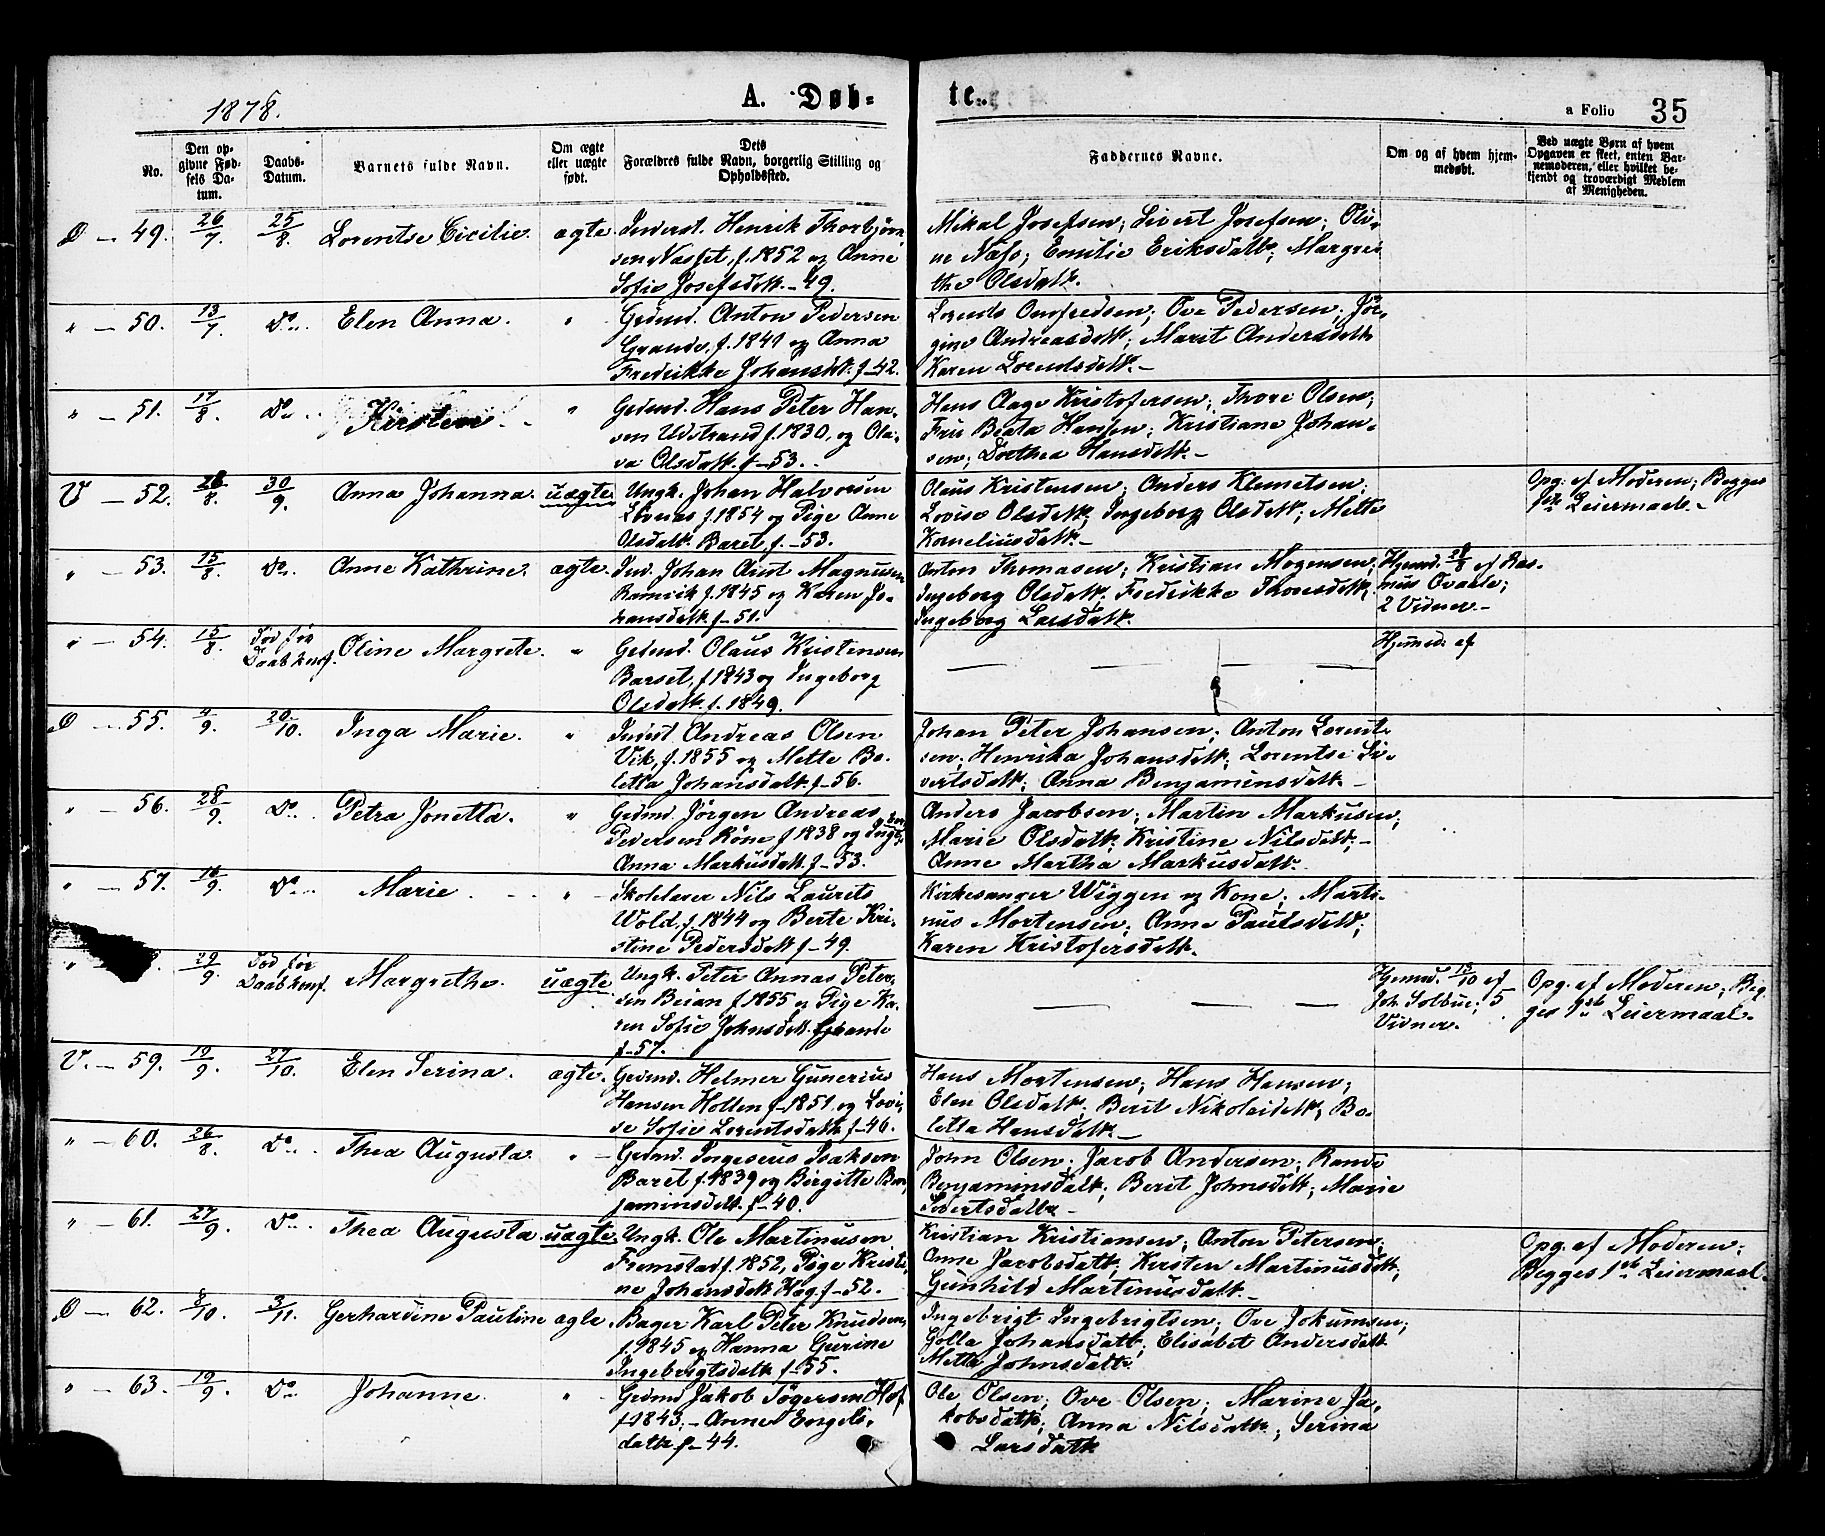 1878.
A. Døb-
te.
a Folio 35
No.
Den op-
givne Fød-
sels Da-
tum.
Daabs-
Datum.
Barnets fulde Navn.
Om ægte
eller uægte
født.
Dets
Forældres fulde Navn, borgerlig Stilling og
Opholdssted.
Faddernes Navne.
Om og af hvem hjem-
medøbt.
Ved uægte Børn af hvem
Opgaven er skeet, enten Bar-
nemoderen, eller hvilket be-
kjendt og troværdigt Medlem
af Menigheden.
O — 49. 26/7. 25/8. Lorentse Cicilie. ægte.
Inderst. Henrik Thorbjørn-
sen Nasset, f. 1852 og Anne
Sofie Josefsdttr. - 49.
Mikal Josefsen; Sivert Josefsen; Oli-
ne Næss; Emilie Eriksdattr.; Margre-
the Olsdattr.
" — 50. 13/7. Do. Elen Anna. "
Gdmd. Anton Pedersen
Grande, f. 1841 og Anna
Fredrikke Johansdt. f - 42.
Lorends Omfredsen; Ove Pedersen; Jør-
gine Andreasdattr; Marit Andersdattr
Karen Lorendsdattr. -
" — 51. 17/8. Do. Kirsten "
Gdmd. Hans Peter Han-
sen Udstrand f. 1830, og Ola-
va Olsdattr. f - 53.
Hans Aage Kristofersen; Thore Olsen;
Fru Beata Hansen; Kristiane Johan-
sen; Dorthea Hansdattr. -
V — 52. 26/8. 30/9. Anna Johanna. uægte
Ungk. Johan Halvorsen
Løvaas f. 1854 og Pige Anne
Olsdattr. Baret, f. - 53.
Olaus Kristensen; Anders Klemetsen;
Lovise Olsdattr; Ingeborg Olsdattr; Mette
Korneliusdattr. -
Opg. af Moderen; Begges
1ste Leiermaal. -
" — 53. 15/8. Do. Anne Kathrine. ægte.
Ind. Johan Aust Magnusen
Ramvik f. 1845 og Karen Jo-
hansdattr f - 51.
Anton Thomasen; Kristian Mogensen;
Ingeborg Olsdattr. Fredrikke Thoresdattr;
Ingeborg Larsdattr.
Hjemd. 28/8 af Ras-
mus Ovaale;
2 Vidner -
" — 54. 15/8. Død før
Daab konf. Oline Margrete. "
Gdmd. Olaus Kristensen
Barset, f 1843 og Ingeborg
Olsdattr. f. 1849.
Hjemd. af
O — 55. 4/9. 20/10. Inga Marie. "
Inderst Andreas Olsen
Vik, f. 1855 og Mette Bo-
letta Johansdattr f - 56.
Johan Peter Johansen; Anton Lorent-
sen; Henrika Johansdattr; Lorentse Si-
vertsdattr; Anna Benjaminsdattr. -
" — 56. 28/9. Do. Petra Jonetta. "
Gdmd. Jørgen Andreas
Pedersen Røne f. 1838 og Inge-
Anna Markusdatt. f - 53.
Anders Jacobsen; Martin Markusen;
Marie Olsdattr; Kristine Nilsdattr; -
Anne Martha Markusdattr.
" — 57. 16/9. Do. Marie. "
Skolelærer Nils Laurits
Wold, f. 1844 og Berte Kri-
stine Pedersdatt f - 49.
Kirkesanger Wiggen og Kone; Marti-
nus Mortensen; Anne Paulsdattr;
Karen Kristofersdattr.
" 29/9. Død før
Daab konf. Margrethe. uægte
Ungk. Peter Annas Peter-
sen Beian f. 1855 og Pige Ka-
ren Sofie Johnsdatt. Grande
f - 57.
Hjemd. 13/10 af
Joh. Solbue; 5
Vidner.
Opg. af Moderen; Beg-
ges 1ste Leiermaal.
V. — 59. 19/9. 27/10. Elen Serina. ægte.
Gdmd. Helmer Gunerius
Hansen Hollen f - 1851 og Lovi-
se Sofie Lorentsdattr f - 46.
Hans Mortensen; Hans Hansen;
Elen Olsdattr; Berit Nikolaidattr; Bo-
letta Hansdattr. -
" — 60. 26/8. Do. Thea Augusta. "
Gdmd. Ingeserus Isaksen
Baret f. 1839 og Birgitte Ben-
jaminsdatt. f - 40.
John Olsen; Jacob Andersen; Randi
Benjaminsdattr; Berit Johnsdattr; Marie
Sivertsdattr. -
" — 61. 27/9. Do. Thea Augusta. uægte.
Ungk. Ole Martinusen
Fremstad f. 1852, Pige Kristi-
ne Johansdattr Hag f - 52.
Kristian Kristiansen; Anton Petersen;
Anne Jacobsdattr; Kirsten Martinusdattr;
Gunhild Martinusdattr. -
Opg. af Moderen;
Begges 1ste Leiermaal.
O — 62. 8/10. 3/11. Gerhardine Pauline ægte.
Bager Karl Peter Knudsen,
f. 1845 og Hanna Gurine
Ingebrigtsdattr f - 55.
Ingebrigt Ingebrigtsen; Ove Jokumsen;
Golla Johansdattr; Elisabet Andersdattr
Mette Johnsdattr.
" — 63. 19/9. Do. Johanne. "
Gdmd Jakob Tøgersen Hof
f. 1843. - Anne Engels-
dattr f - 44.
Ole Olsen; Ove Olsen; Marine Ja-
kobsdattr; Anna Nilsdattr; Serina
Larsdattr